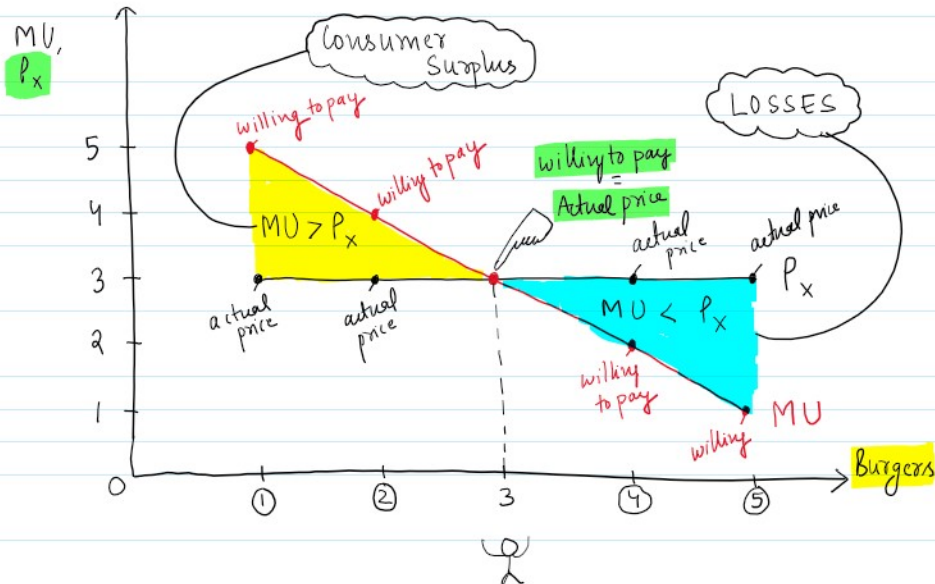 MU,
Px
Consumer
Surplus
LOSSES
willing to pay
willing to pay
willing to pay
=
Actual price
5
4
3
2
1
0
MU > Px
actual
price
actual
price
actual
price
actual price
Px
MU < Px
willing
to pay
willing
MU
Burgers
1
2
3
4
5